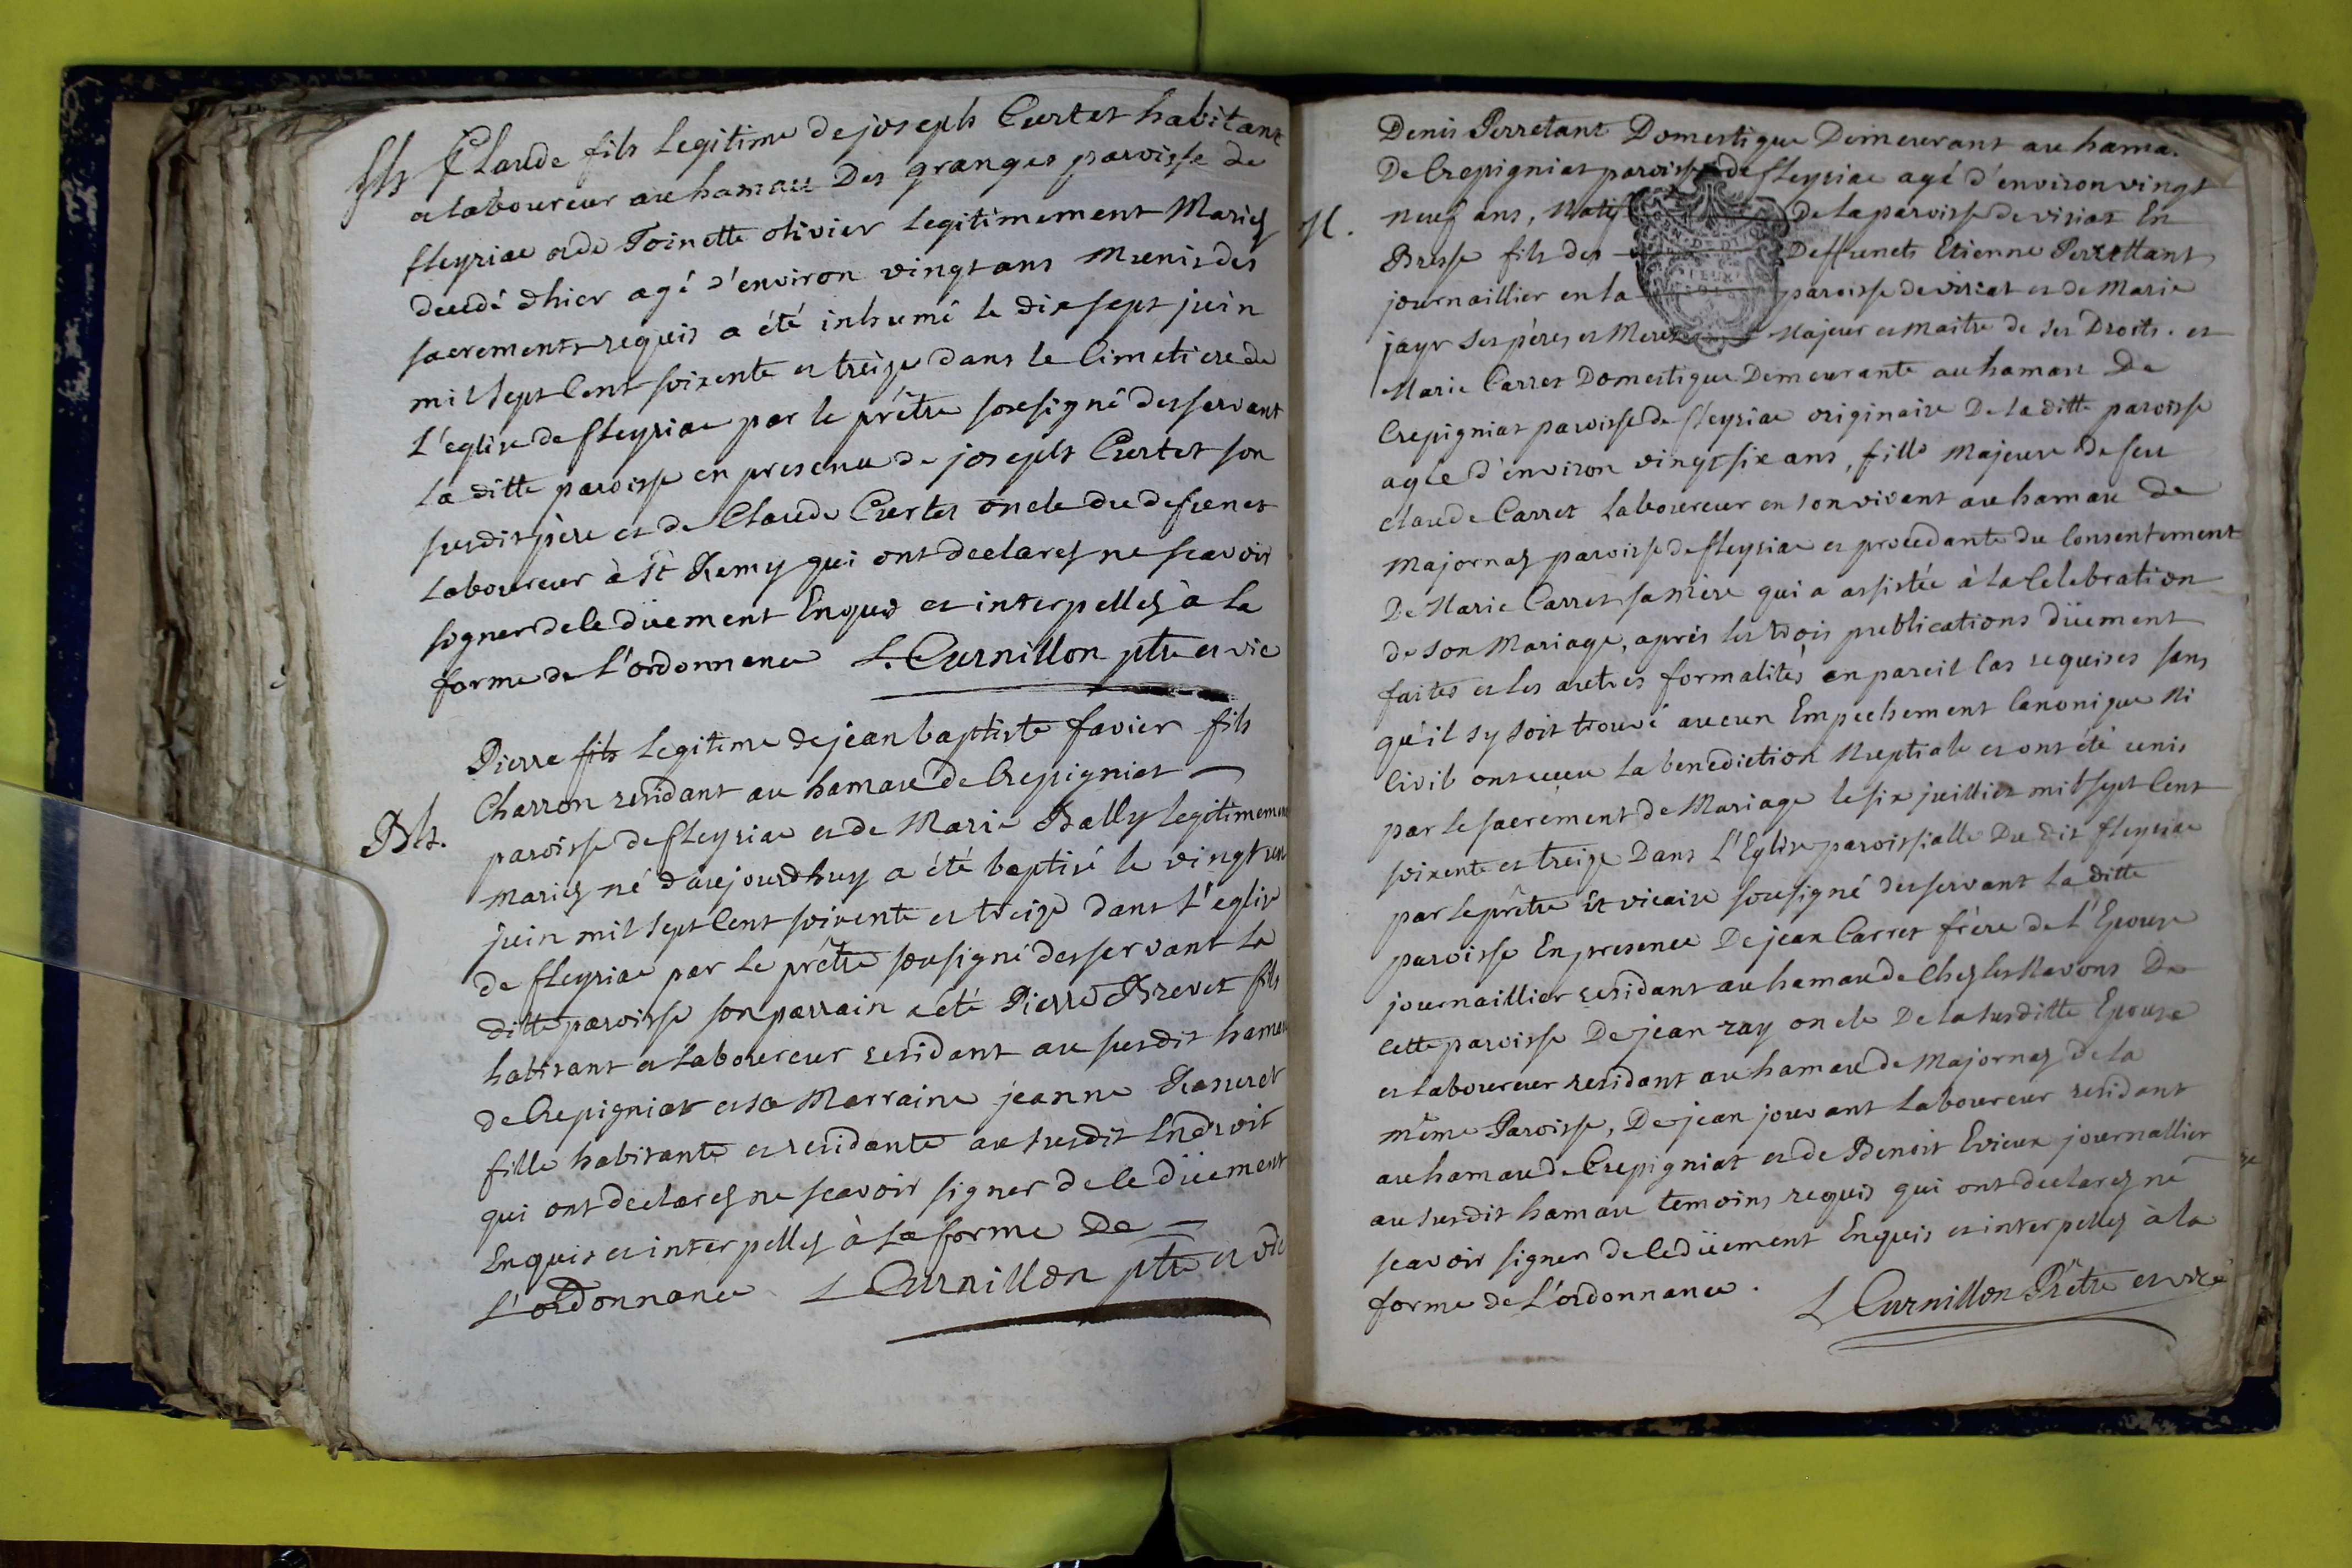 Claude fils legitime de joseph Curtet habitant
et laboureur au hamau Des granges paroisse de
fleyriac et de Toinette olivier legitimement Mariez
decedé dhier agé d'environ vingt ans Munis des
sacrements requis a été inhumé le dix sept juin
mil sept Cent soixente et treize dans le Cimetiere de
L'eglise de fleyriac par le prêtre sousigné desservant
la ditte paroisse en presence de joseph Curtet son
susdit père et de Claude Curtet oncle du defunct
Laboureur à St Remy qui ont declarez ne scavoir
signer de ce düement Enquis et interpellez à la
forme de l'ordonnance L. Curnillon ptre et vic
Bt.
Pierre fils legitime de jean baptiste favier fils
Charron residant au hamau de Crepigniat
paroisse de fleyriac et de Marie Bally legitimement
mariez né d'aujourdhuy a été baptisé le vingt un
juin mil sept Cent soixente et treize dans L'eglise
de fleyriac par le prêtre sousigné desservant la
ditte paroisse son parrain a été Pierre Brevet fils
habitant et laboureur residant au susdit hamau
de Crepigniat et sa Marraine jeanne
fille habitante et residante au susdit Endroit
qui ont declarez ne scavoir signer de ce düement
Enquis et interpellez à la forme De
L'ordonnance L Curnillon ptre et vic
Denis Perretant Domestique Demeurant au hama.
De Crepigniat paroisse de fleyriac agé d'environ vingt
M.
neuf ans, Natif de la paroisse de viriat En
Bresse fils des Deffunets Etienne Perrettant
journaillier en la paroisse de viriat et de Marie
jayr ses pères et Meres Majeur et maitre de ses Droits. et
Marie Carret Domestique Demeurante au hamau De
Crepigniat paroisse de fleyriac originaire De la ditte paroisse
agée d'environ vingt six ans, fille Majeure de feu
claude Carret Laboureur en son vivant au hamau de
Majornaz paroisse de fleyriac et procedante du Consentement
De Marie Carret sa mère qui a assistée à la Celebration
de son Mariage, après les trois publications düement
faites et les autres formalités en pareil Cas requises sans
qu'il sy soit trouvé aucun Empechement Canonique Ni
Civil ont receu la benediction Nuptiale et ont été unis
par le sacrement de Mariage le six juillier mil sept Cent
soixente et treize Dans L'Eglise paroissialle Du dit fleyriac
par le prêtre et vicaire sousigné desservant la ditte
paroisse En presence De jean Carret frère de L'Epouse
journaillier residant au hamau de Chez les Navons De
cette paroisse De jean ray oncle De la susditte Epouse
et laboureur residant au hamau de Majornaz de la
même Paroisse, De jean jouvant laboureur residant
au hamau de Crepigniat et de Benoit Evieux journallier
au susdit hamau temoins requis qui ont declarez ne
scavoir signer de ce düement Enquis et interpellez à la
forme de L'ordonnance.
L Curnillon Prêtre et vicé